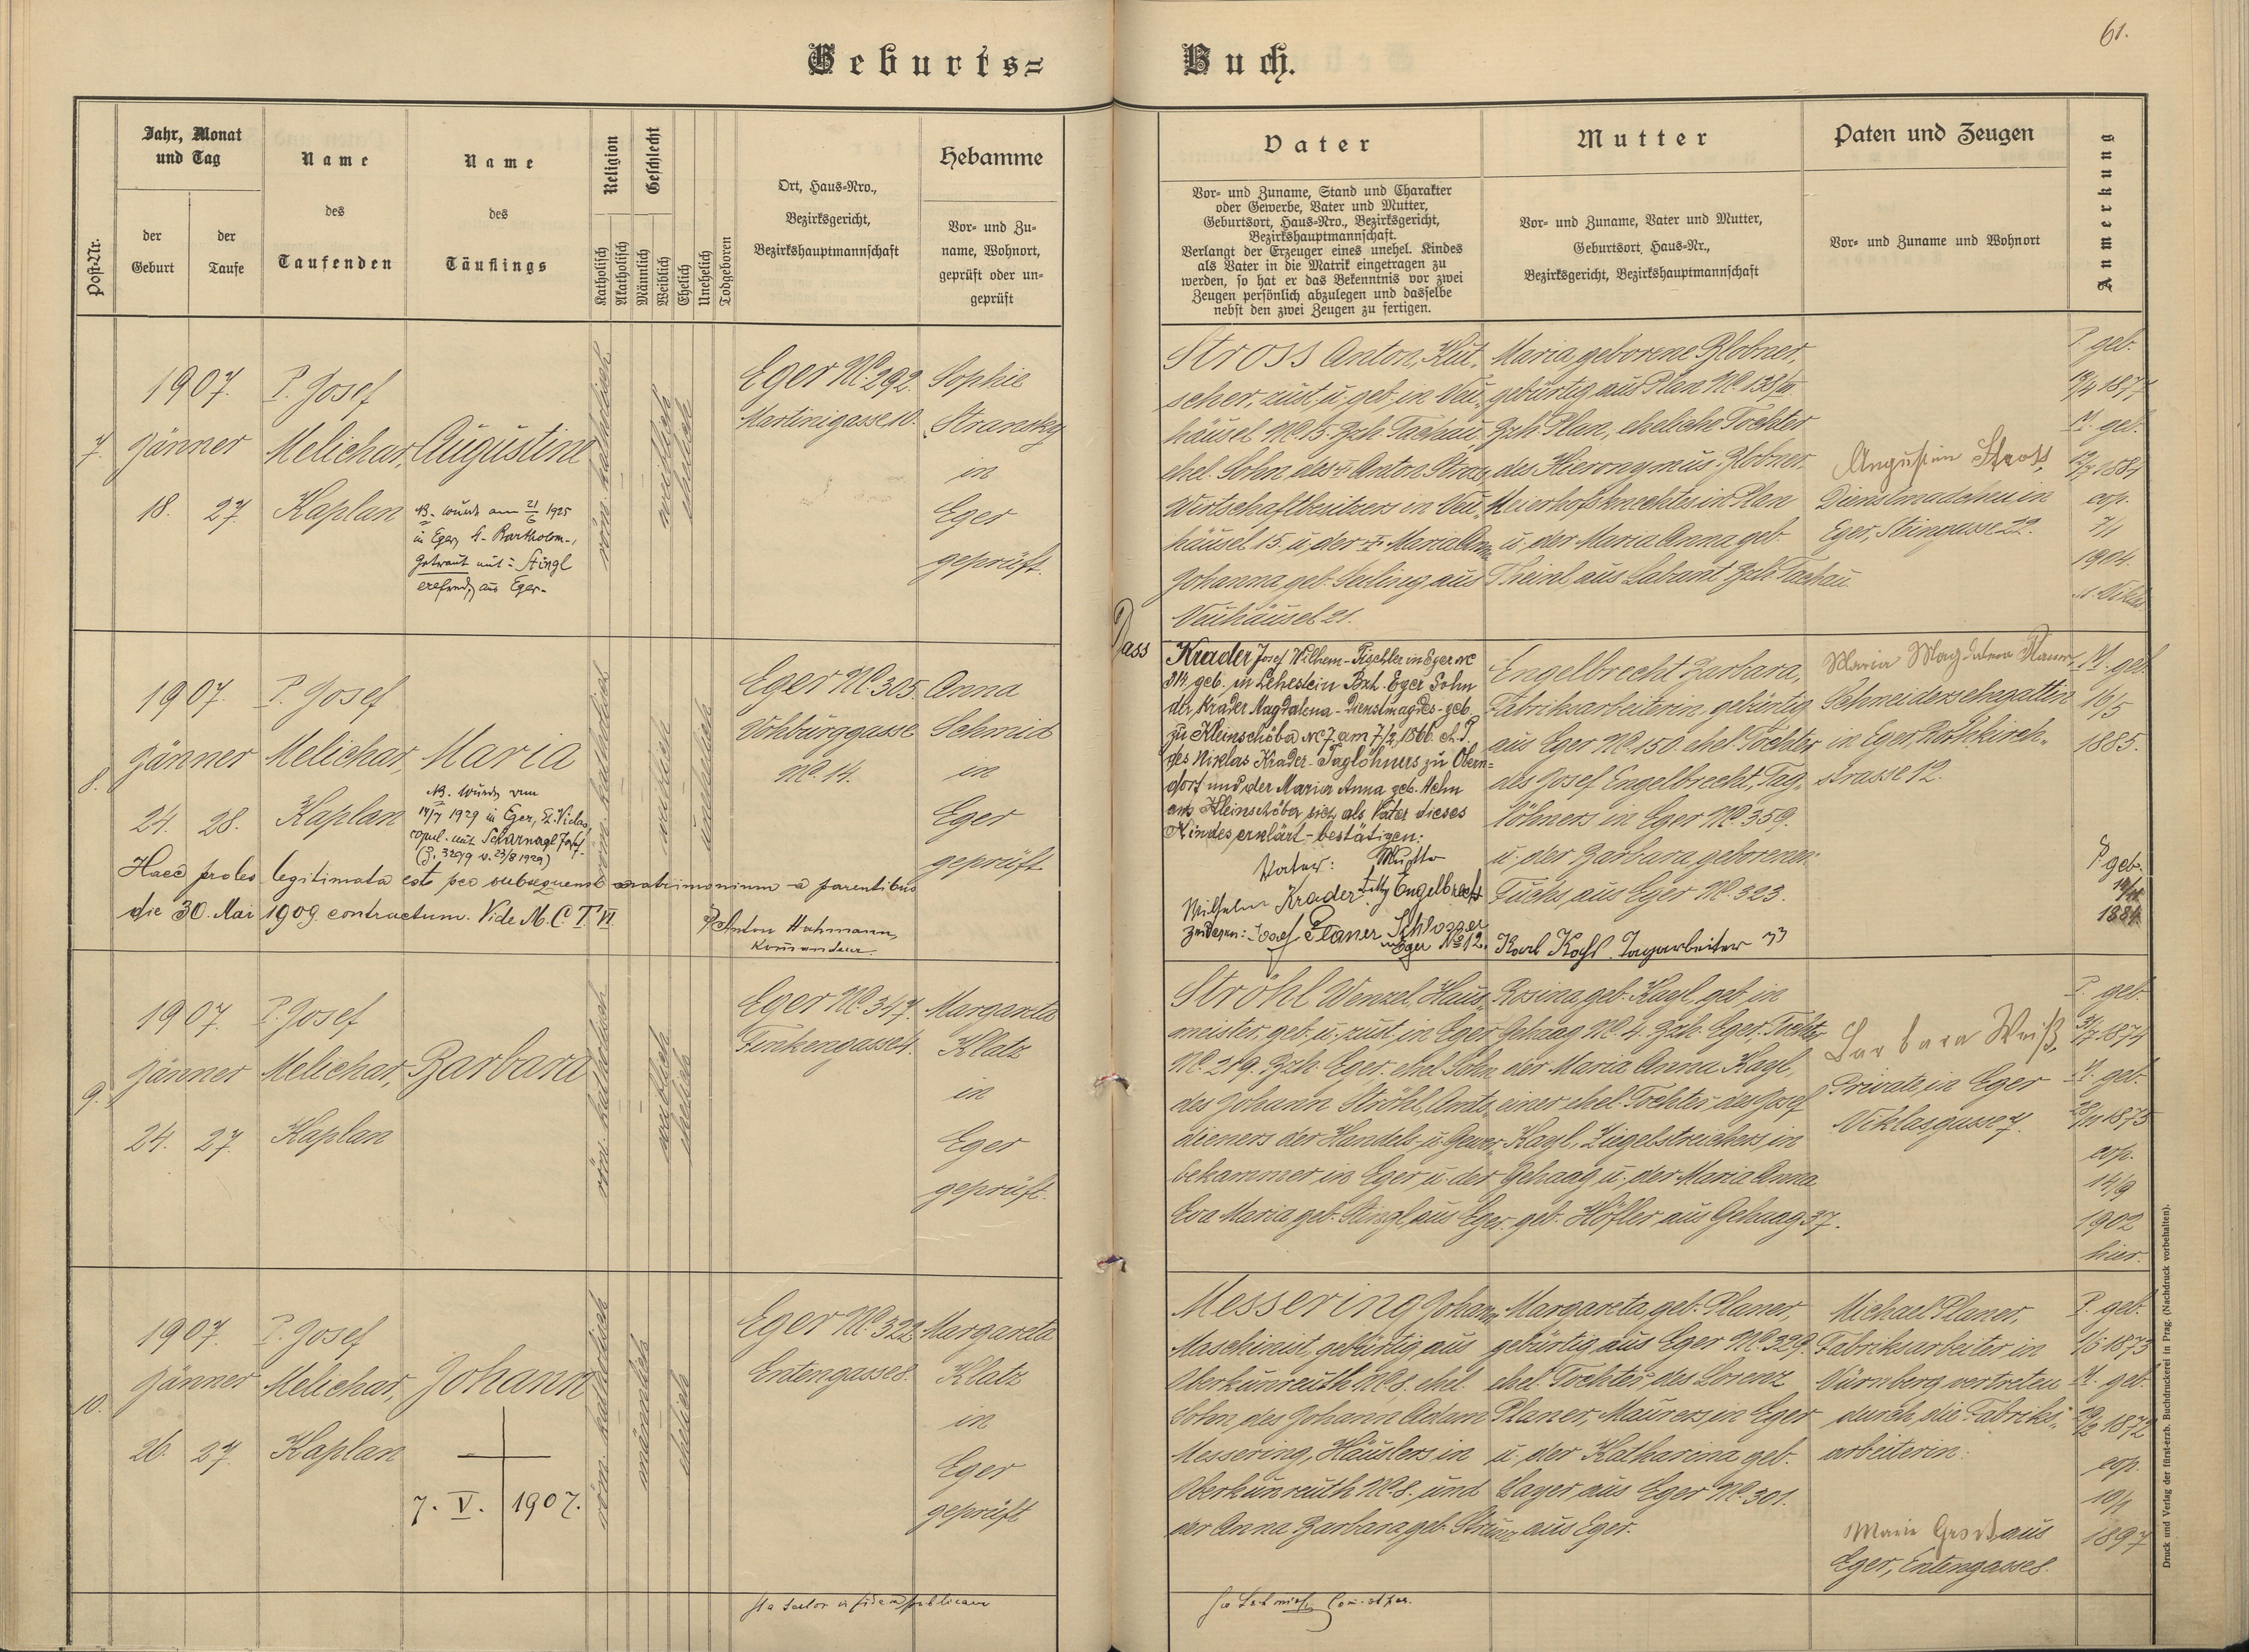 61.
Geburts=
Buch.
Post-Nr.
Jahr, Monat
und Tag
der
Geburt
der
Taufe
Name
des
Taufenden
Name
des
Täuflings
Religion
Katholisch
Akatholisch
Geschlecht
Männlich
Weiblich
Ehelich
Unehelich
Todgeboren
Ort, Haus=Nro.,
Bezirksgericht,
Bezirkshauptmannschaft
Hebamme
Vor= und Zu=
name, Wohnort,
geprüft oder un=
geprüft
Vater
Vor= und Zuname, Stand und Charakter
oder Gewerbe, Vater und Mutter,
Geburtsort, Haus=Nro., Bezirksgericht,
Bezirkshauptmannschaft.
Verlangt der Erzeuger eines unehel. Kindes
als Vater in die Matrik eingetragen zu
werden, so hat er das Bekenntnis vor zwei
Zeugen persönlich abzulegen und dasselbe
nebst den zwei Zeugen zu fertigen.
Mutter
Vor= und Zuname, Vater und Mutter,
Geburtsort, Haus=Nr.,
Bezirksgericht, Bezirkshauptmannschaft
Paten und Zeugen
Vor= und Zuname und Wohnort
Anmerkung
7.
1907.
Jänner
18. 27.
P. Josef
Melichar,
Kaplan
Augustina
NB. wurde am 21/6 1925
in Eger, St. Bartholom.,
getraut mit: Stingl
aus Eger.
röm. katholisch
weiblich
ehelich
Eger No. 292.
Martinigasse 10.
Sophie
Stransky
in
Eger
geprüft.
Stross Anton, Kut-
scher, zust. u. geb. in Neu-
häusel No. 15. Bzh. Tachau,
ehel. Sohn des Anton Stross,
Wirtschaftbesitzers in Neu-
häusel 15. u. der Maria Anna
Johanna geb. Seiling aus
Neuhäusel 21.
Maria geborene Globner,
gebürtig aus Plan No. 138/III.
Bzh. Plan, eheliche Tochter
des Hieronymus Globner
Meierhofsknechtes in Plan
u. der Maria Anna geb.
Theinl aus Labant Bzh. Tachau
Augustin Stross,
Dienstmädchen in
Eger, Steingasse 22.
P. geb.
1877
M. geb.
1881
cop.
7/1
1904.
8.
1907.
Jänner
24. 28.
P. Josef
Melichar,
Kaplan
Maria
NB. wurde am
1929 in Eger, St. Niclas
copul. mit Scharnagl Josef
(Z. 320/9 v. 23/8 1929)
röm. katholisch
weiblich
unehelich
Eger No. 305.
Vohburggasse
No. 14.
Anna
Schmid
in
Eger
geprüft
Haec proles legitimata est per subsequens matrimonium a parentibus
die 30. Mai 1909 contractum. Vide M. C. T. VI.
P. Anton Hahmann,
Kommandeur.
Dass
Krader Josef Wilhem - Tischler in Eger No
314. geb. in Lehestein Bzh. Eger Sohn
der Krader Magdalena - Dienstmagdes - geb.
zu Kleinschöba No 7 am 7/2 1866 d. T.
des Niklas Krader - Taglöhners zu Obern-
dorf und der Maria Anna geb. Helm
aus Kleinschöba sich als Vater dieses
Kindes erklärt - bestätigen:
Vater: Mutter
Wilhelm Krader Betty Engelbrecht
Zeugen: Josef Planer Schlosser
Eger No 12. Karl Köhl Tagarbeiter 33
Engelbrecht Barbara,
Fabriksarbeiterin, gebürtig
aus Eger No. 150. ehel. Tochter
des Josef Engelbrecht, Tag-
löhners in Eger No. 359.
u. der Barbara geborenen
Fuchs aus Eger No. 323.
Maria Magdalena
Schneidersehegattin
in Eger, Rothkirch-
strasse 12.
M. geb.
16/5
1885.
P. geb.
1884.
9.
1907.
Jänner
24. 27.
P. Josef
Melichar,
Kaplan
Barbara
röm. katholisch
weiblich
ehelich
Eger No. 347.
Finkengasse 4.
Margareta
Klatz
in
Eger
geprüft.
Ströhl Wenzel, Haus-
meister, geb. u. zust. in Eger
No. 219. Bzh. Eger. ehel. Sohn
des Johann Ströhl, Amts-
dieners der Handels- u. Gewer-
bekammer in Eger u. der
Eva Maria geb. Stingl aus Eger.
Rosina geb. Kagl, geb. in
Gehaag No. 4. Bzh. Eger. Tochter
der Maria Anna Kagl,
einer ehel. Tochter des Josef
Kagl, Ziegelstreichers in
Gehaag u. der Maria Anna
geb. Höfler aus Gehaag 37.
Barbara Weiß,
Private in Eger
Niklasgasse 7.
P. geb.
3/7 1874
M. geb.
28/11 1875
cop.
14/9
1902
hier.
10.
1907.
Jänner
26. 27.
P. Josef
Melichar,
Kaplan
Johann
7. V. 1907.
röm. katholisch
männlich
ehelich
Eger No. 322
Entengasse 8.
Margareta
Klatz
in
Eger
geprüft
Messering Johann
Maschinist, gebürtig aus
Oberkunreuth No. 8. ehel.
Sohn des Johann Adam
Messering, Häuslers in
Oberkunreuth No. 8. und
der Anna Barbara geb. Strunz aus Eger.
Margareta geb. Planer,
gebürtig aus Eger No. 329.
ehel. Tochter des Lorenz
Planer, Maurers in Eger
u. der Katharina geb.
Bayer aus Eger No. 301.
Michael Planer,
Fabriksarbeiter in
Nürnberg vertreten
durch die Fabriks-
arbeiterin:
Marie Gross aus
Eger, Entengasse 8.
P. geb.
1/5 1873
M. geb.
1872
cop.
10/1
1897
Druck und Verlag der fürst-erzb. Buchdruckerei in Prag. (Nachdruck vorbehalten).